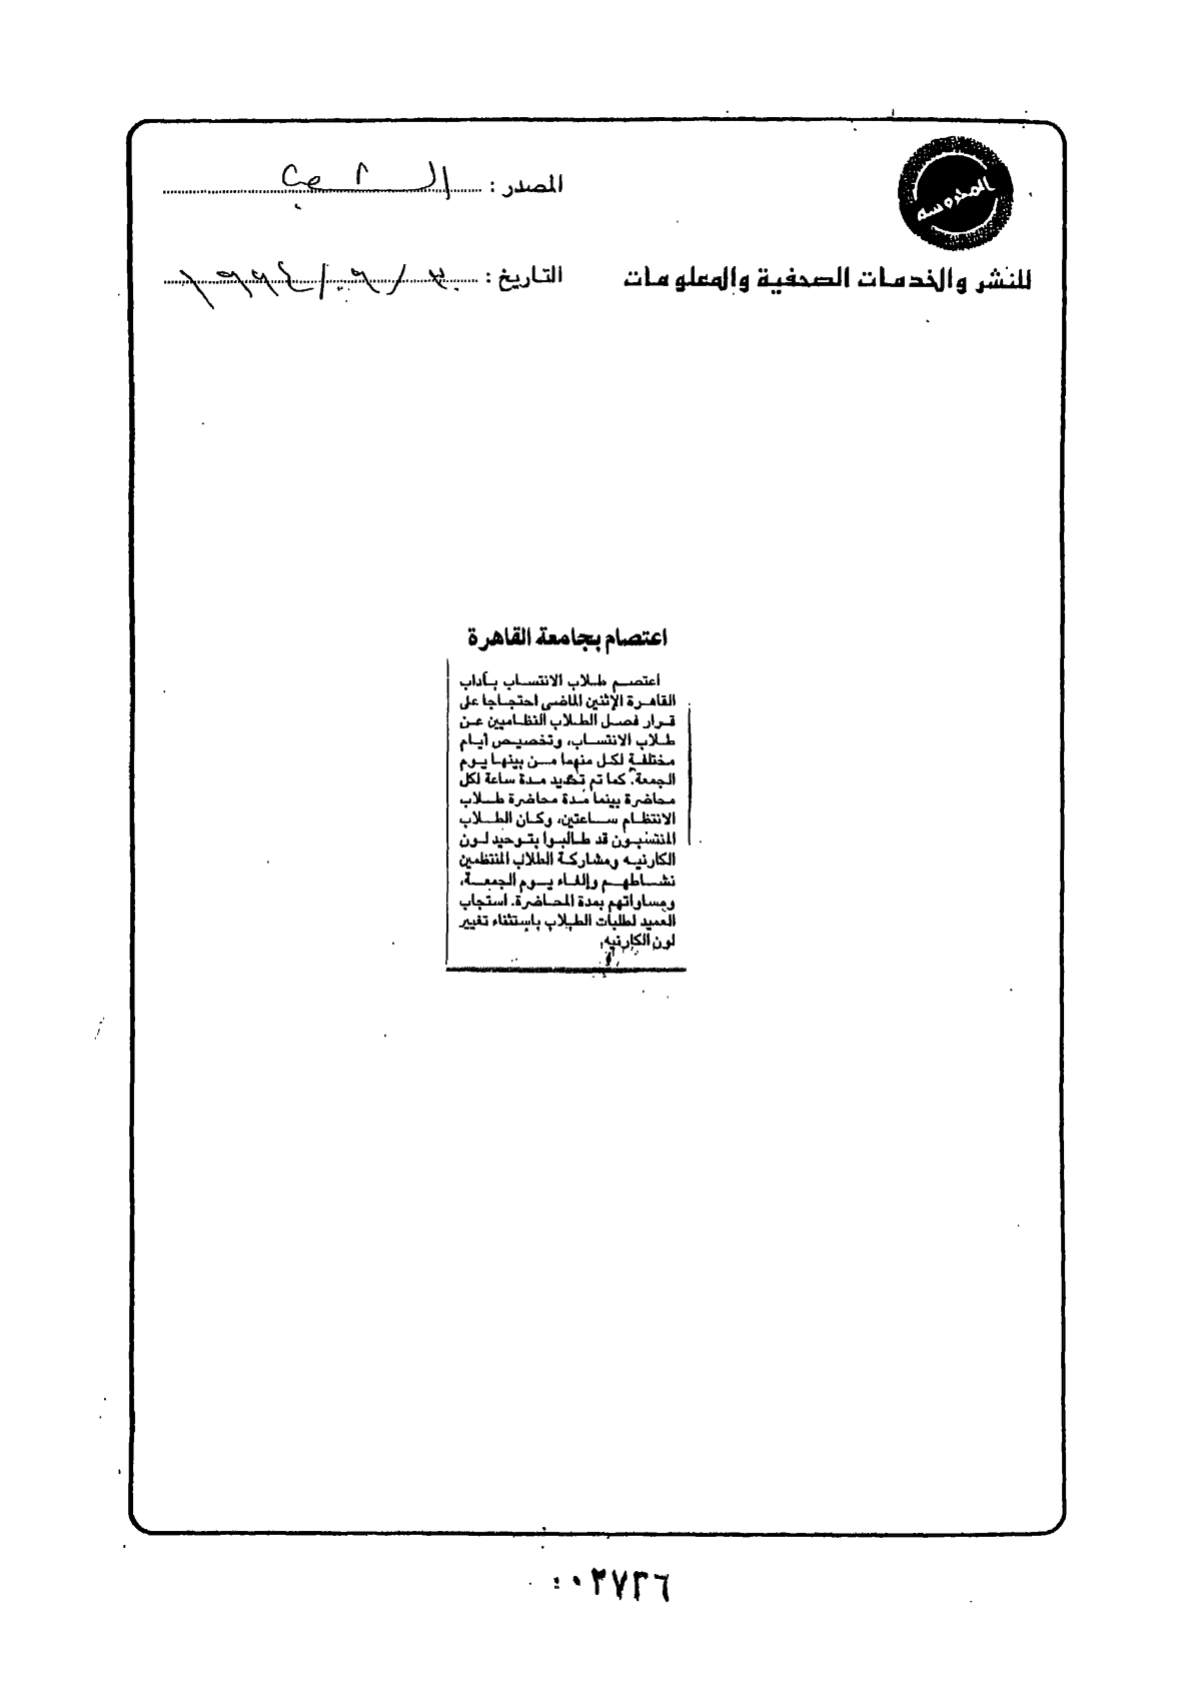 المحروسة
للنشر والخدمات الصحفية والمعلومات
المصدر : الشعب
التاريخ : ٣٠ / ٩ / ١٩٩٤
اعتصام بجامعة القاهرة
اعتصم طلاب الانتساب بآداب
القاهرة الإثنين الماضى احتجاجا على
قرار فصل الطلاب النظاميين عن
طلاب الانتساب، وتخصيص أيام
مختلفة لكل منهما من بينها يوم
الجمعة. كما تم تحديد مدة ساعة لكل
محاضرة بينما مدة محاضرة طلاب
الانتظام ساعتين، وكان الطلاب
المنتسبون قد طالبوا بتوحيد لون
الكارنيه ومشاركة الطلاب المنتظمين
نشاطهم وإلغاء يوم الجمعة،
ومساواتهم بمدة المحاضرة. استجاب
العميد لطلبات الطلاب باستثناء تغيير
لون الكارنيه.